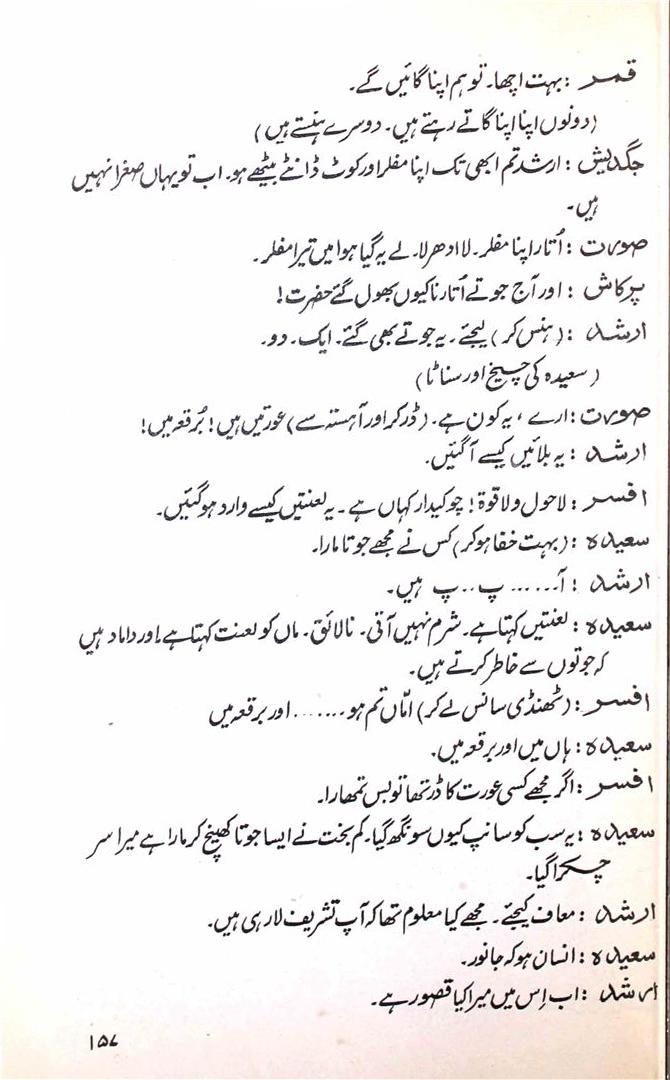 قمر : بہت اچھا۔ تو ہم اپنا گائیں گے۔
(دونوں اپنا اپنا گاتے رہتے ہیں۔ دوسرے ہنستے ہیں)
جگدیش : ارشد تم ابھی تک اپنا مفلر اور کوٹ ڈانٹے بیٹھے ہو۔ اب تو یہاں صغرا نہیں
ہیں۔
صورت : اُتار اپنا مفلر۔ لا ادھر لا۔ لے یہ گیا ہوا میں تیرا مفلر۔
پرکاش : اور آج جوتے اُتارنا کیوں بھول گئے حضرت!
ارشد : (ہنس کر) لیجئے۔ یہ جوتے بھی گئے۔ ایک۔ دو۔
(سعیدہ کی چیخ اور سناٹا)
صورت : ارے، یہ کون ہے۔ (ڈر کر اور آہستہ سے) عورتیں ہیں! بُرقعہ میں!
ارشد : یہ بلائیں کیسے آگئیں۔
افسر : لاحول ولا قوۃ! چوکیدار کہاں ہے۔ یہ لعنتیں کیسے وارد ہوگئیں۔
سعیدہ : (بہت خفا ہوکر) کس نے مجھے جوتا مارا۔
ارشد : آ...... پ .. پ ہیں۔
سعیدہ : لعنتیں کہتا ہے۔ شرم نہیں آتی۔ نالائق۔ ماں کو لعنت کہتا ہے اور داماد ہیں
کہ جوتوں سے خاطر کرتے ہیں۔
افسر : (ٹھنڈی سانس لے کر) امّاں تم ہو....... اور برقعہ میں
سعیدہ : ہاں میں اور برقعہ میں۔
افسر : اگر مجھے کسی عورت کا ڈر تھا تو بس تمھارا۔
سعیدہ : یہ سب کو سانپ کیوں سونگھ گیا۔ کم بخت نے ایسا جوتا کھینچ کر مارا ہے میرا سر
چکرا گیا۔
ارشد : معاف کیجئے۔ مجھے کیا معلوم تھا کہ آپ تشریف لا رہی ہیں۔
سعیدہ : انسان ہو کہ جانور۔
ارشد : اب اِس میں میرا کیا قصور ہے۔
۱۵۷